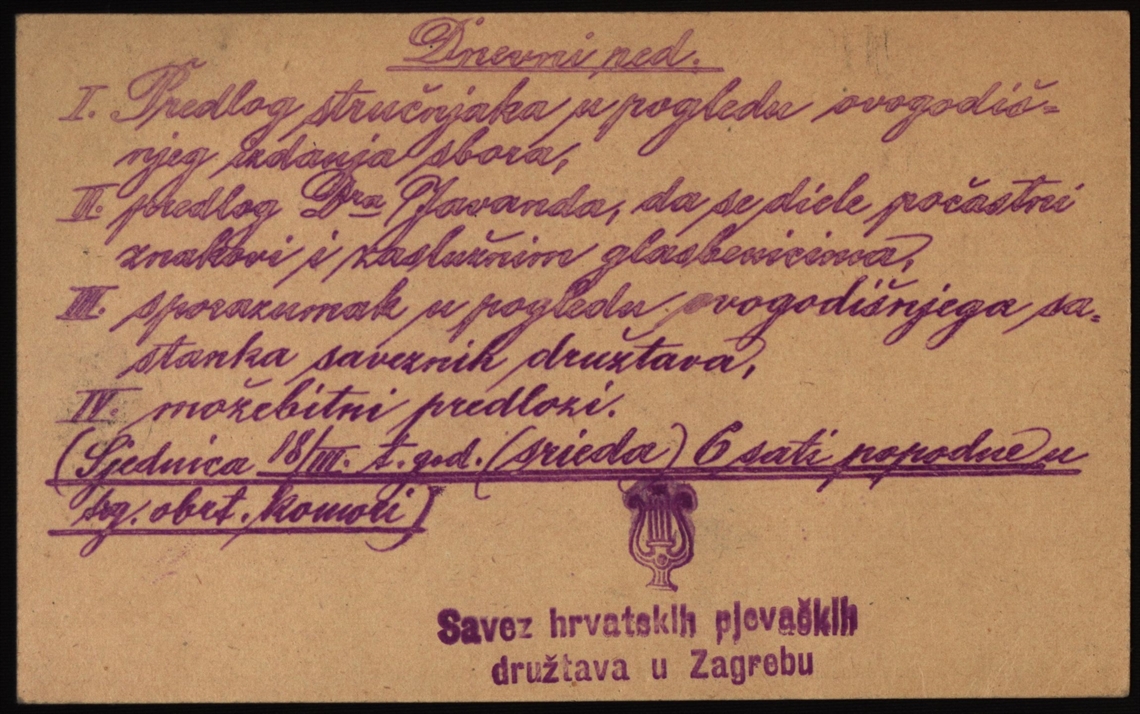 Dnevni red.
I. Predlog stručnjaka u pogledu ovogodiš=
njeg izdanja sbora,
II. predlog Dra Javanda, da se diele počastni
znakovi i zaslužnim glasbenicima,
III. sporazumak u pogledu ovogodišnjega sa=
stanka saveznih družtava,
IV. možebitni predlozi.
(Sjednica 18/III. t. god. (srieda) 6 sati popodne u
trg. obrt. komori)
Savez hrvatskih pjevačkih
družtava u Zagrebu